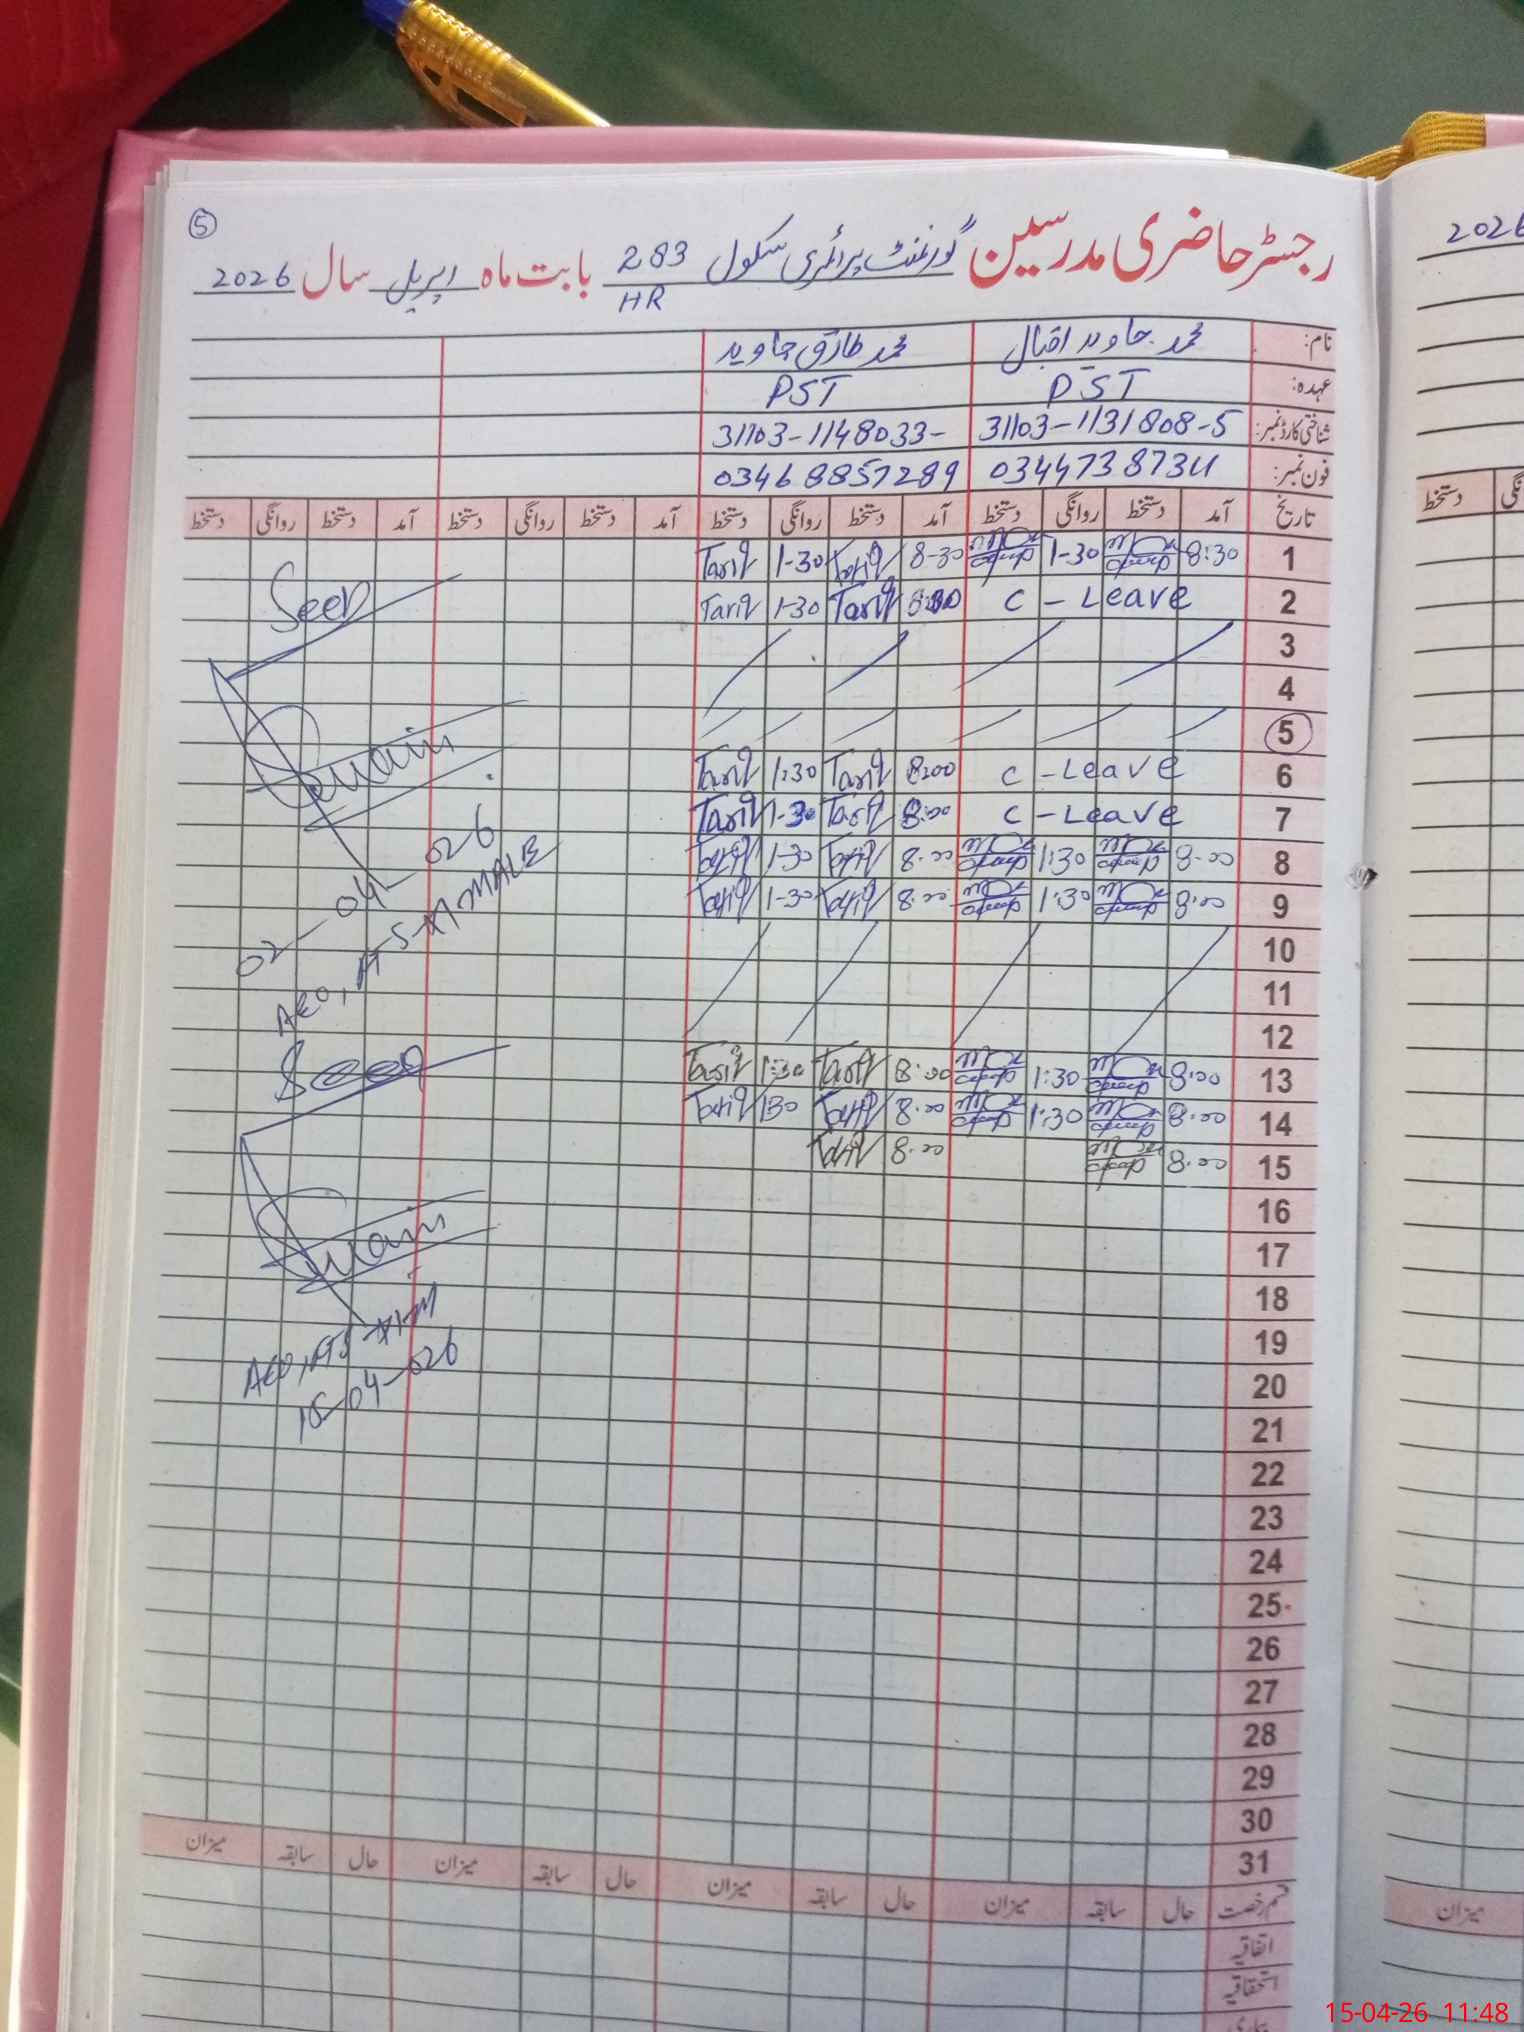 5
رجسٹر حاضری مدرسین گورنمنٹ پرائمری سکول 283 HR بابت ماہ اپریل سال 2026
نام: محمد جاوید اقبال محمد طارق جاوید
عہدہ: PST PST
شناختی کارڈ نمبر: 31103-1131808-5 31103-1148033-
فون نمبر: 03447387311 03468857289
تاریخ آمد دستخط روانگی دستخط آمد دستخط روانگی دستخط آمد دستخط روانگی دستخط آمد دستخط روانگی دستخط
1 8:30 1-30 8-30 Tariq 1-30 Tariq
2 C - Leave Tariq 1-30 Tariq
3
4
5
6 C - Leave 8:00 Tariq 1:30 Tariq
7 C - Leave 8:00 Tariq 1-30 Tariq
8 8:00 1:30 8:00 Tariq 1-30 Tariq
9 8:00 1:30 8:00 Tariq 1-30 Tariq
10
11
12
13 8:00 1:30 8:00 Tariq 1:30 Tariq
14 8:00 1:30 8:00 Tariq 130 Tariq
15 8:00 8:00 Tariq
16
17
18
19
20
21
22
23
24
25
26
27
28
29
30
31
Seen
02-04-026
AEO,
MALE
Seen
15-04-026
قسم رخصت حال سابقہ میزان حال سابقہ میزان حال سابقہ میزان حال سابقہ میزان
اتفاقیہ
استحقاقیہ
بیماری
2026
دستخط
میزان
15-04-26 11:48